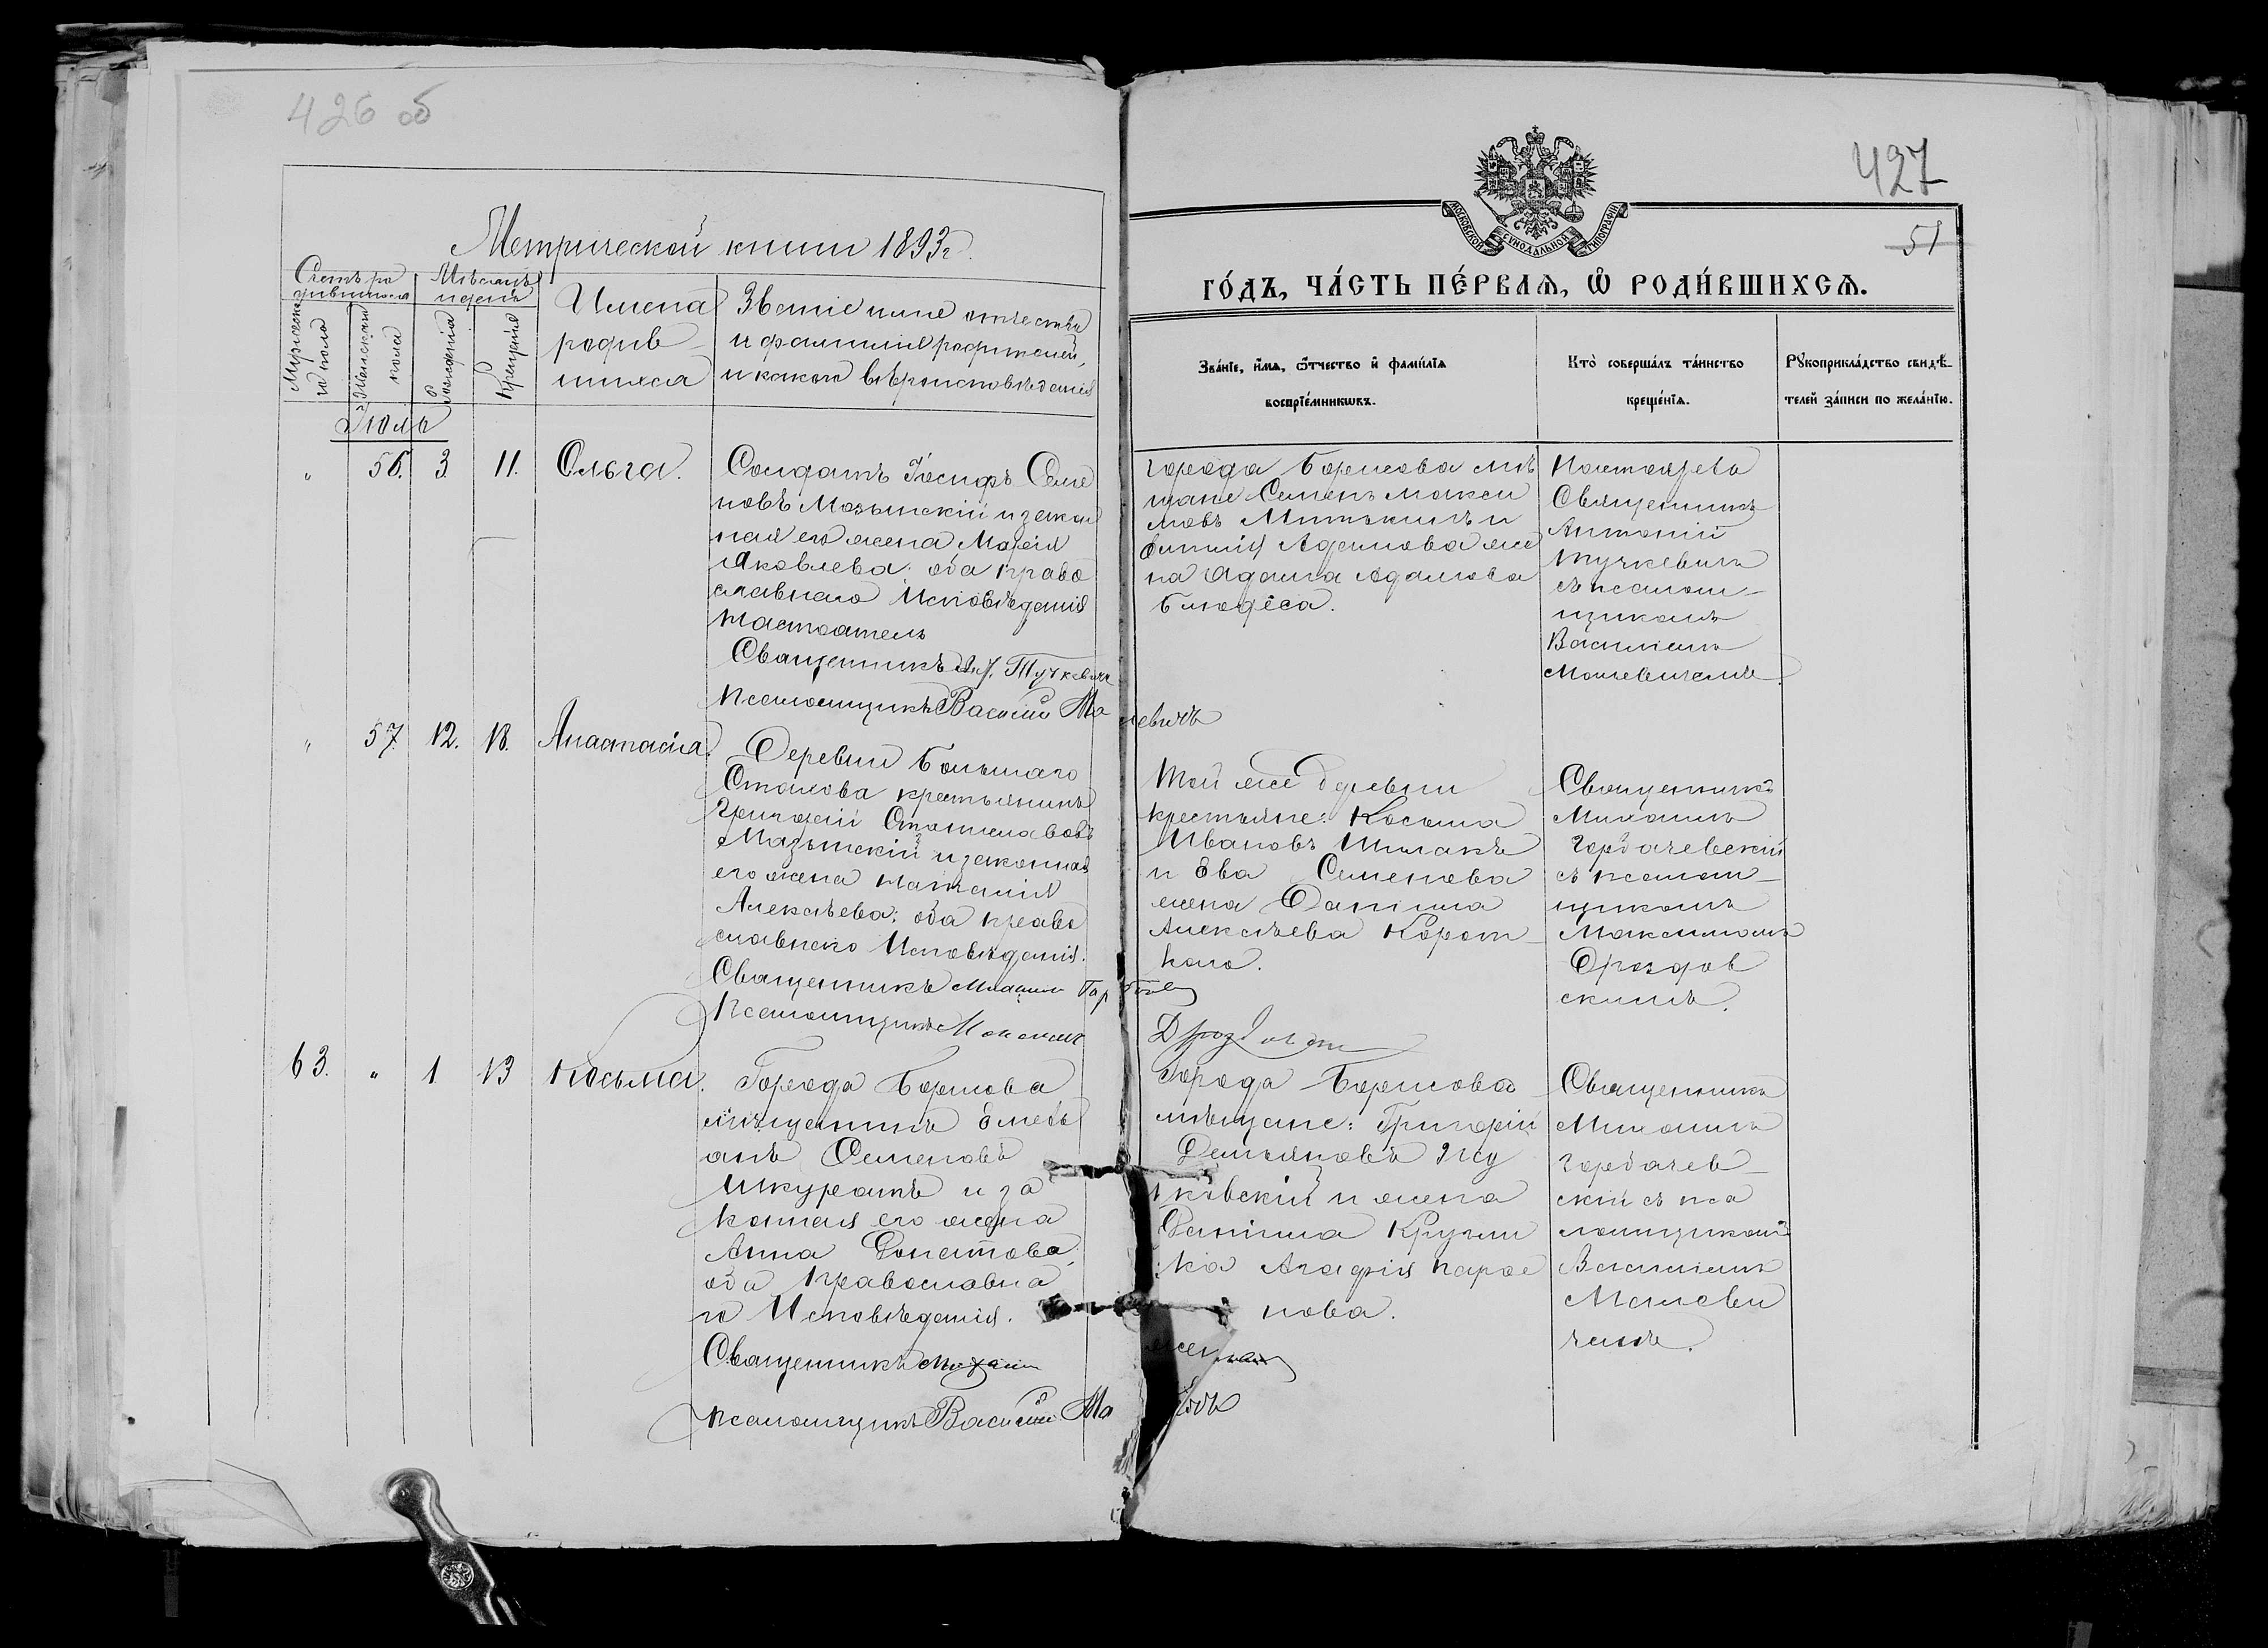 426 об
Метрической книги 1893 г.
Счетъ ро
дившихся
Мѣсяцъ
и день
Мужеска
го пола
Женскаго
пола
Рожденія
Крещенія
Имена
родив
шихся
Званіе имя отчество
и фамилія родителей,
и какого вѣроисповѣданія
Іюль
" 56. 3. 11. Ольга.
Солдатъ Іосифъ Семе
новъ Мозынскій и закон
ная его жена Марія
Яковлева: оба право
славнаго Исповѣданія
Настоятель
Священникъ Ант. Тучкевичъ
Псаломщикъ Василій Ма левичъ
" 57. 12. 18. Анастасія.
Деревни Большаго
Стахова крестьянинъ
Григорій Станиславовъ
Мазынскій и законная
его жена Наталія
Алексѣева: оба право
славнаго Исповѣданія.
Священникъ Михаилъ
Псаломщикъ Максимъ
63. " 1. 13 Косьма.
Города Борисова
мѣщанинъ Емель
анъ Семеновъ
Шкуратъ и за
конная его жена
Анна Донатова
оба Православна
го Исповѣданія.
Священникъ Михаилъ
Псаломщикъ Василій Ма
427
51
МОСКОВСКОЙ СѴНОДАЛЬНОЙ ТИПОГРАФІИ
ГО́ДЪ, ЧА́СТЬ ПЕ́РВАѦ, Ѡ҆ РОДИ́ВШИХСѦ.
Зва́нїе, и҆́мѧ, ѻ҆́тчество и҆ фами́лїѧ
воспрїе́мникѡвъ.
Кто̀ соверша́лъ та́инство
креще́нїѧ.
Рꙋкоприкла́дство свидѣ́-
телей за́писи по жела́нїю.
города Борисова мѣ
щане Семенъ Макси
мовъ Митькинъ и
Адамова же
на Адама Адамова
Блюдеса.
Настоятель
Священникъ
Антоній
Тучкевичъ
съ псалом-
щикомъ
Василіемъ
Малевичемъ.
Той же деревни
крестьяне: Косьма
Ивановъ Шпакъ
и Ева Семенова
жена Даніила
Алексѣева Корот-
каго.
Священникъ
Михаилъ
Горбачевскій
съ псалом-
щикомъ
Максимомъ
Дроздов
скимъ.
Города Борисова
мѣщане: Григорій
Демьяновъ
ковскій и жена
Даніила Кругли
ка Агафія Карпе
нова.
Священникъ
Михаилъ
Горбачев-
скій съ пса
ломщикомъ
Василіемъ
Малеви
чемъ.